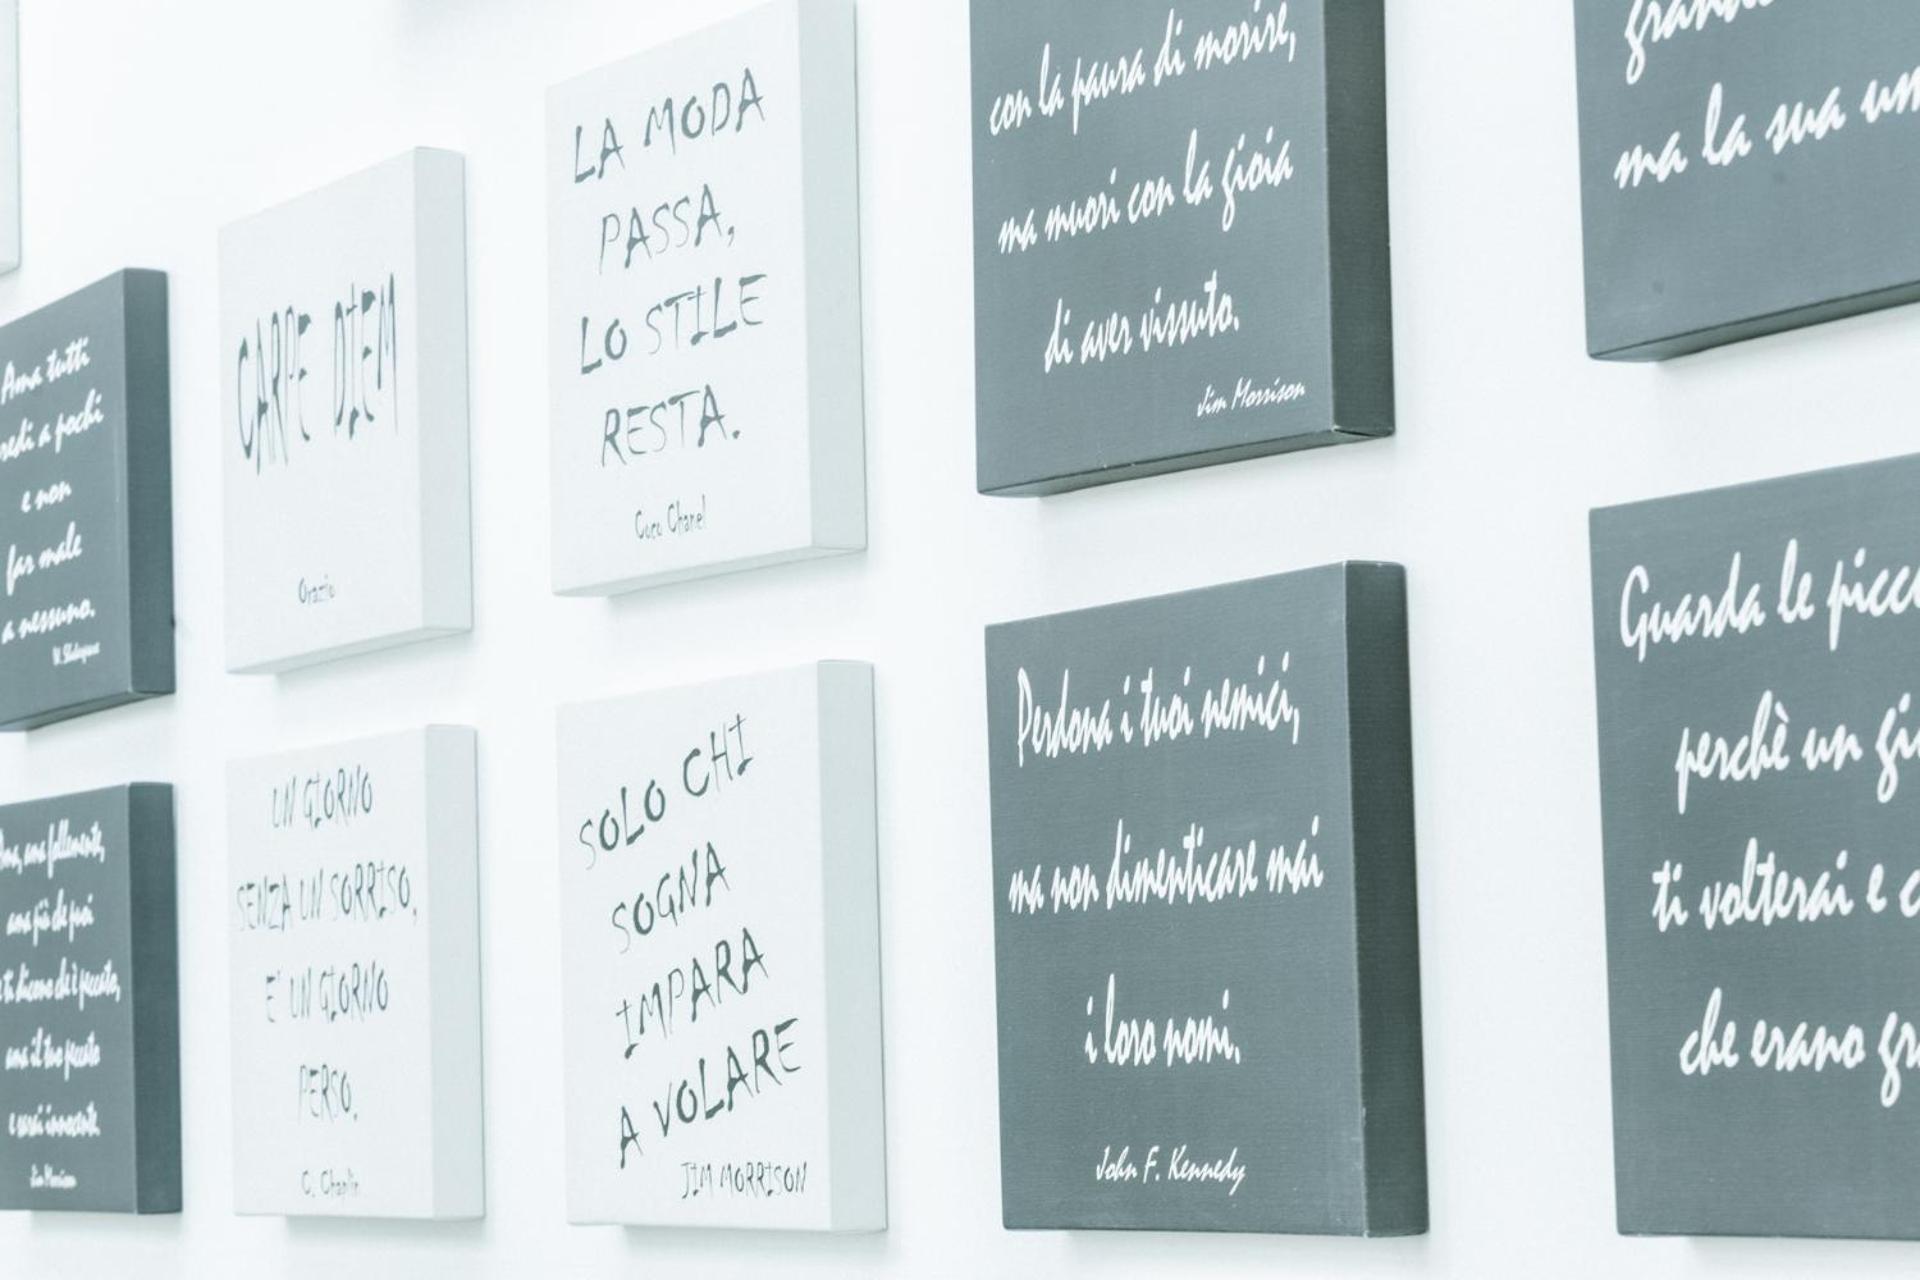 Ama tutti
redi a pochi
e non
far male
a nessuno.
CARPE DIEM
Orazio
LA MODA
PASSA,
LO STILE
RESTA.
Coco Chanel
con la paura di morire,
ma muori con la gioia
di aver vissuto.
Jim Morrison
ma la sua
ama, ama follemente,
ama più che puoi
e ti dicono che è peccato,
ama il tuo peccato
e sarai innocente.
Jim Morrison
UN GIORNO
SENZA UN SORRISO,
E' UN GIORNO
PERSO.
C. Chaplin
SOLO CHI
SOGNA
IMPARA
A VOLARE
JIM MORRISON
Perdona i tuoi nemici,
ma non dimenticare mai
i loro nomi.
John F. Kennedy
Guarda le
perchè un
ti volterai e
che erano